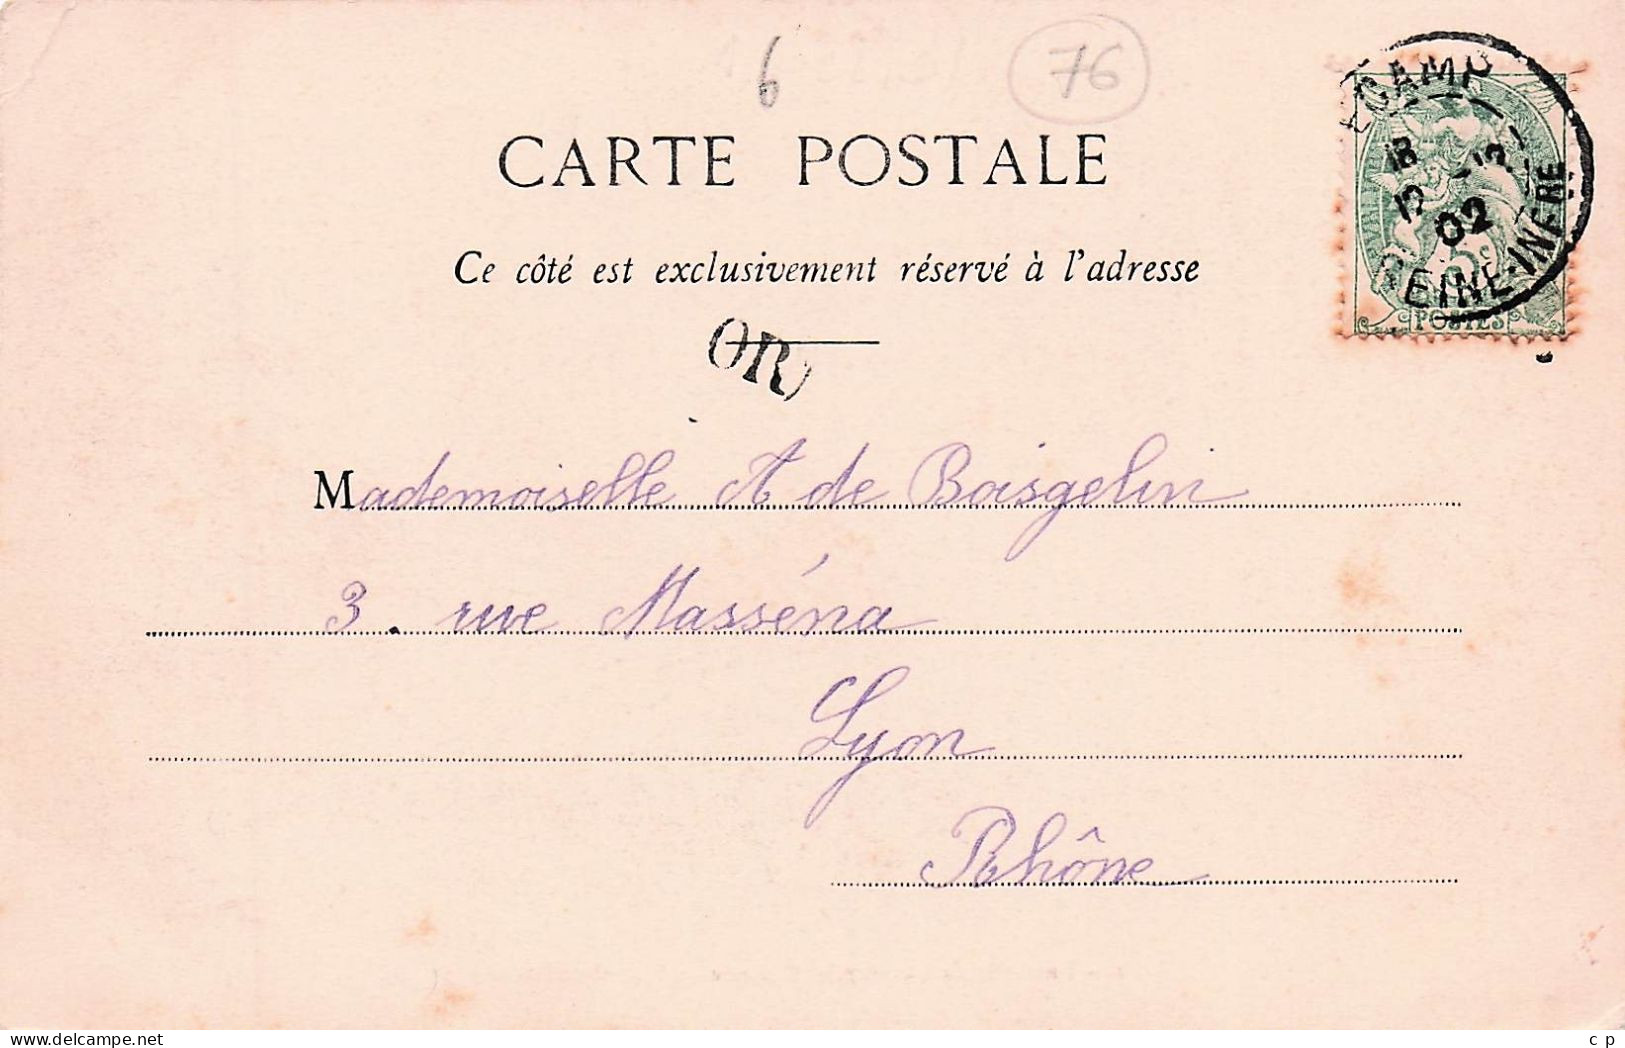 6
76
CARTE POSTALE
Ce côté est exclusivement réservé à l'adresse
OR
ECAMP
18
02
SEINE-INFRE
5c
POSTES
Mademoiselle A de Boisgelin
3. rue Masséna
Lyon
Rhône
c p